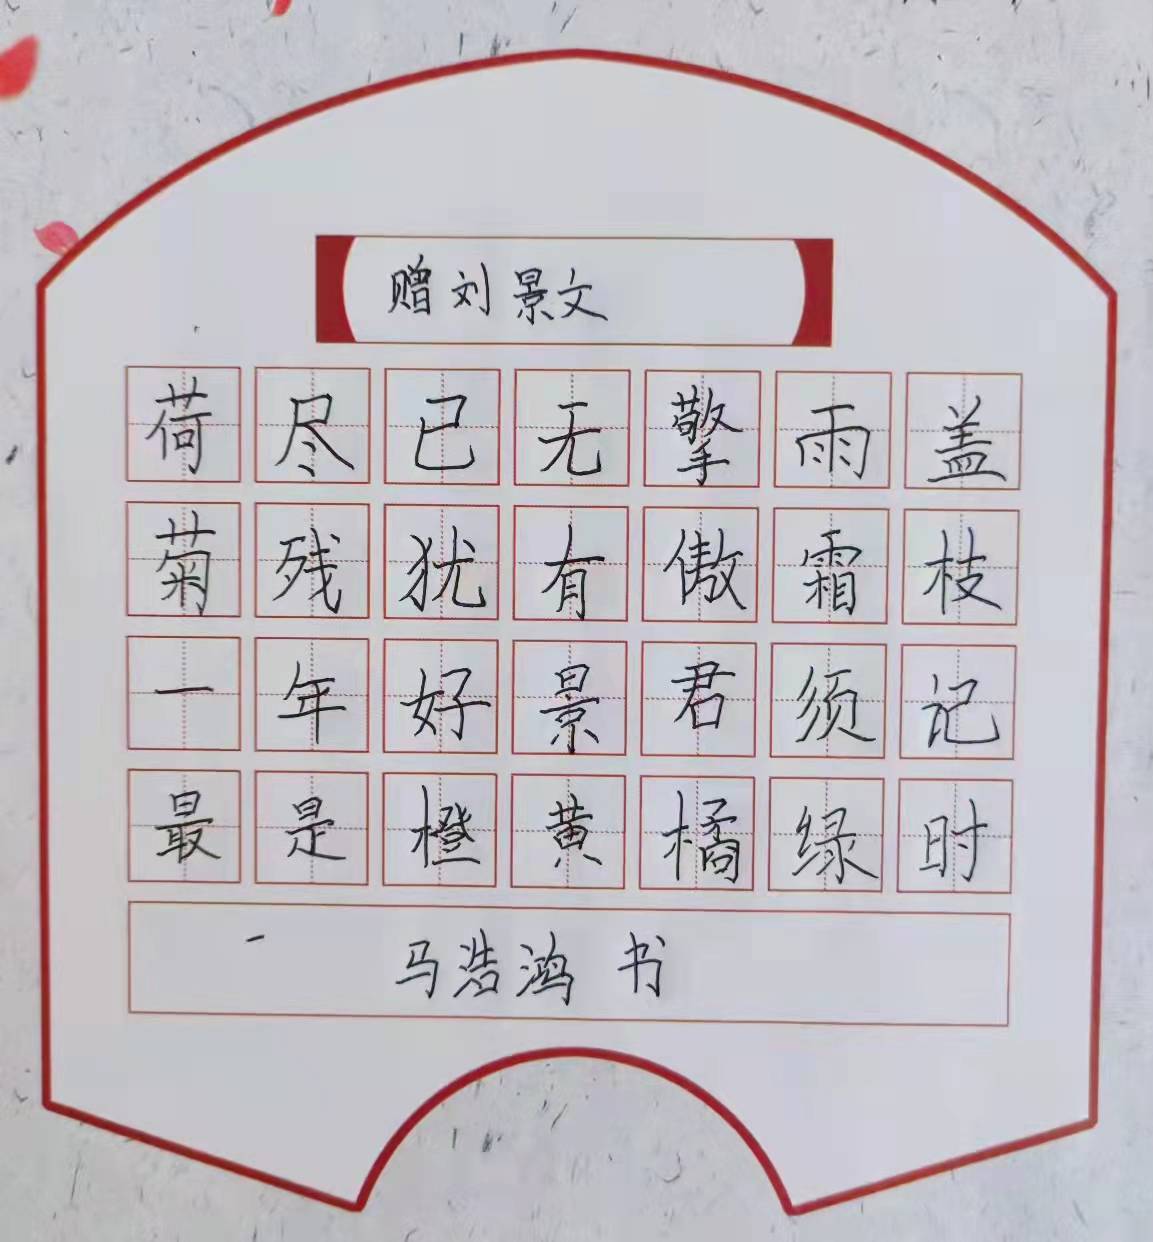 赠刘景文
荷尽已无擎雨盖
菊残犹有傲霜枝
一年好景君须记
最是橙黄橘绿时
马浩鸿 书